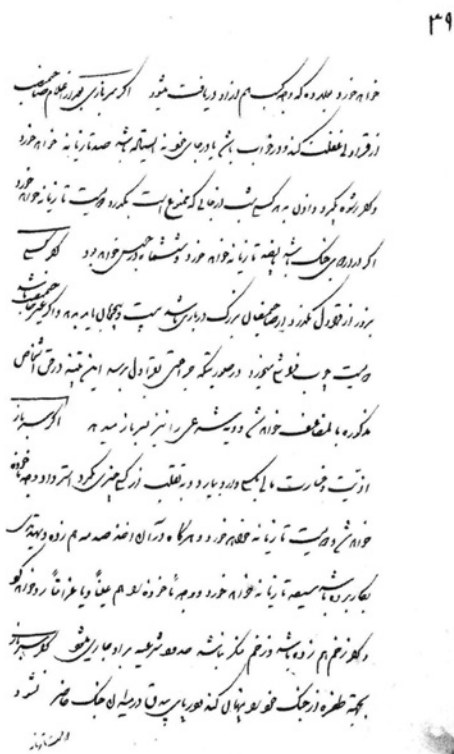 ۳۹
خواهد خورد و بعلاوه که وجه کسب هم از او دریافت میشود اگر سربازی بعد از اعلام صاحبمنصب
از قراولی غفلت کند و در خواب باشد یا در جای خود نه ایستاده باشد صد تازیانه خواهد خورد
و اگر رشوه بگیرد و اذن بدهد کسی شب از جائی که ممنوع است بگذرد دویست تازیانه خواهد خورد
اگر در اردوی جنگ باشد پانصد تازیانه خواهد خورد و ششماه در حبس خواهد بود اگر کسی
بزور از قراول بگذرد از صاحبمنصبان بزرگ درباری باشد
دویست چوب میخورد در صورتیکه جراحتی بقراول برسد این تنبیه در حق اشخاص
مذکوره بالمضاعف خواهد شد و دیه شرعی را نیز بسرباز میدهد اگر سرباز
اذیت و خسارت مالی بکسی وارد بیارد و به تقلب از کسی چیزی بگیرد استرداد وجه ماخوذه
خواهد شد و دویست تازیانه خواهد خورد و هرگاه در آن اخذ صدمه هم زده و تهدیدی
بکار برده باشد سیصد تازیانه خواهد خورد و وجه ماخوذه او هم عیناً و یا غرامتاً رد خواهد شد
و اگر زخم هم زده باشد و زخم منکر باشد حدود شرعیه بر او جاری میشود اگر سرباز
بجهة طفره از جنگ خود را پنهان کند در پای بیدق در میدان جنگ حاضر نشود